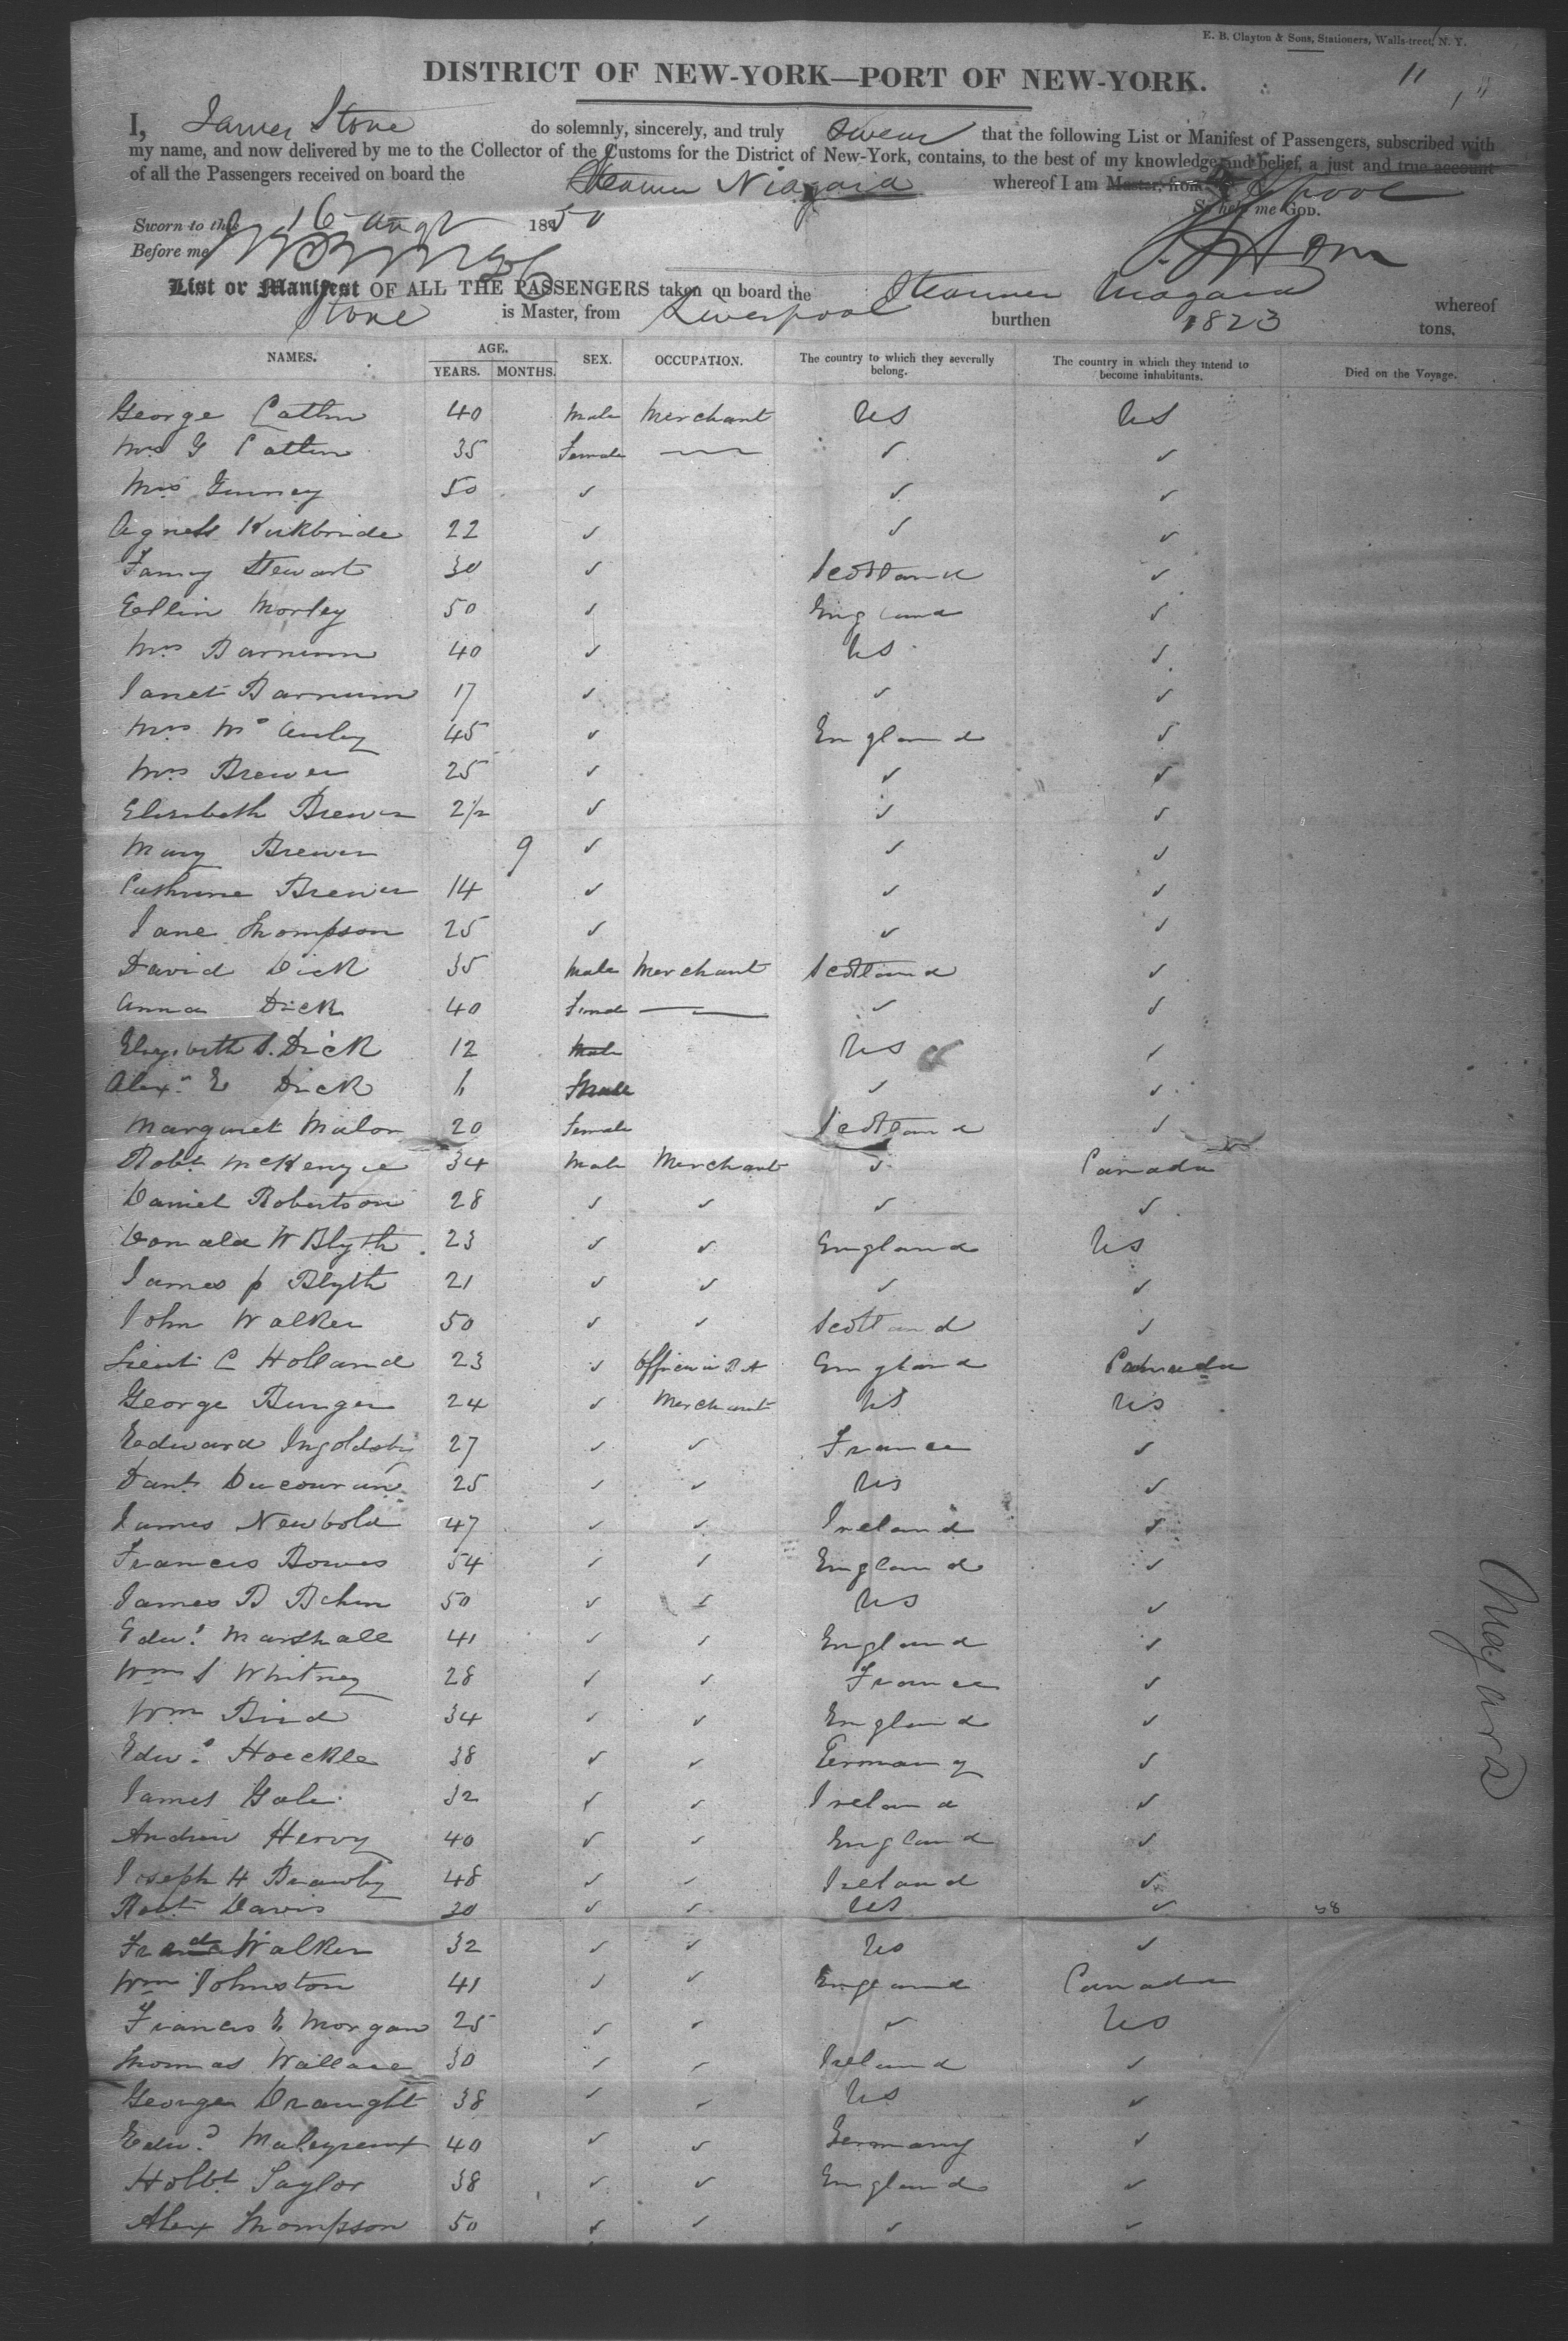 E. B. Clayton & Sons, Stationers, Walls-treet, N. Y.
11
DISTRICT OF NEW-YORK—PORT OF NEW-YORK.
I, James Stone do solemnly, sincerely, and truly swear that the following List or Manifest of Passengers, subscribed with
my name, and now delivered by me to the Collector of the Customs for the District of New-York, contains, to the best of my knowledge and belief, a just and true account
of all the Passengers received on board the Steamer Niagara whereof I am Master, from L'pool
Sworn to this 16 Augt 1850 So help me GOD.
Before me
List or Manifest OF ALL THE PASSENGERS taken on board the Steamer Niagara whereof
Stone is Master, from Liverpool burthen 1823 tons.
NAMES. AGE. YEARS. MONTHS. SEX. OCCUPATION. The country to which they severally belong. The country in which they intend to become inhabitants. Died on the Voyage.
George Catlin 40 Male Merchant US US
Mrs G Catlin 35 Female — ✓ ✓
Mrs Gurney 50 ✓ ✓ ✓
Agness Kirkbride 22 ✓ ✓ ✓
Fanny Stewart 30 ✓ Scotland ✓
Ellin Morley 50 ✓ England ✓
Mrs Barnum 40 ✓ US ✓
Janet Barnum 17 ✓ ✓ ✓
Mrs Mc Auley 45 ✓ England ✓
Mrs Brewer 25 ✓ ✓ ✓
Elizabeth Brewer 2½ ✓ ✓ ✓
Mary Brewer 9 ✓ ✓ ✓
Cathrine Brewer 14 ✓ ✓ ✓
Jane Thompson 25 ✓ ✓ ✓
David Dick 35 Male Merchant Scotland ✓
Anna Dick 40 Female — ✓ ✓
Elizabeth S. Dick 12 Male US ✓
Alexr E Dick 6 ✓ ✓
Margaret Malon 20 Female Scotland ✓
Robt McKenzie 34 Male Merchant ✓ Canada
Daniel Robertson 28 ✓ ✓ ✓ ✓
Donald W Blyth 23 ✓ ✓ England US
James p Blyth 21 ✓ ✓ ✓ ✓
John Walker 50 ✓ ✓ Scotland ✓
Lieut C Holland 23 ✓ Officer in R A England Canada
George Bunger 24 ✓ Merchant US US
Edward Ingoldsby 27 ✓ ✓ France ✓
Danl 25 ✓ ✓ US ✓
James Newbold 47 ✓ ✓ Ireland ✓
Francis Bowes 54 ✓ ✓ England ✓
James B Behn 50 ✓ ✓ US ✓
Edwd Marshall 41 ✓ ✓ England ✓
Wm S Whitney 28 ✓ ✓ France ✓
Wm Bird 34 ✓ ✓ England ✓
Edwd Hoeckle 38 ✓ ✓ Germany ✓
James Gale 32 ✓ ✓ Ireland ✓
Andrew Hervy 40 ✓ ✓ England ✓
Joseph H Brawby 48 ✓ ✓ Ireland ✓
Robt Davis 30 ✓ ✓ US ✓ 38
Walker 32 ✓ ✓ US ✓
Wm Johnston 41 ✓ ✓ England Canada
Francis E Morgan 25 ✓ ✓ ✓ US
Thomas Wallace 30 ✓ ✓ Ireland ✓
George Draught 38 ✓ ✓ US ✓
Edwd 40 ✓ ✓ Germany ✓
Holbt Taylor 38 ✓ ✓ England ✓
Alex Thompson 50 ✓ ✓ ✓ ✓
Niagara